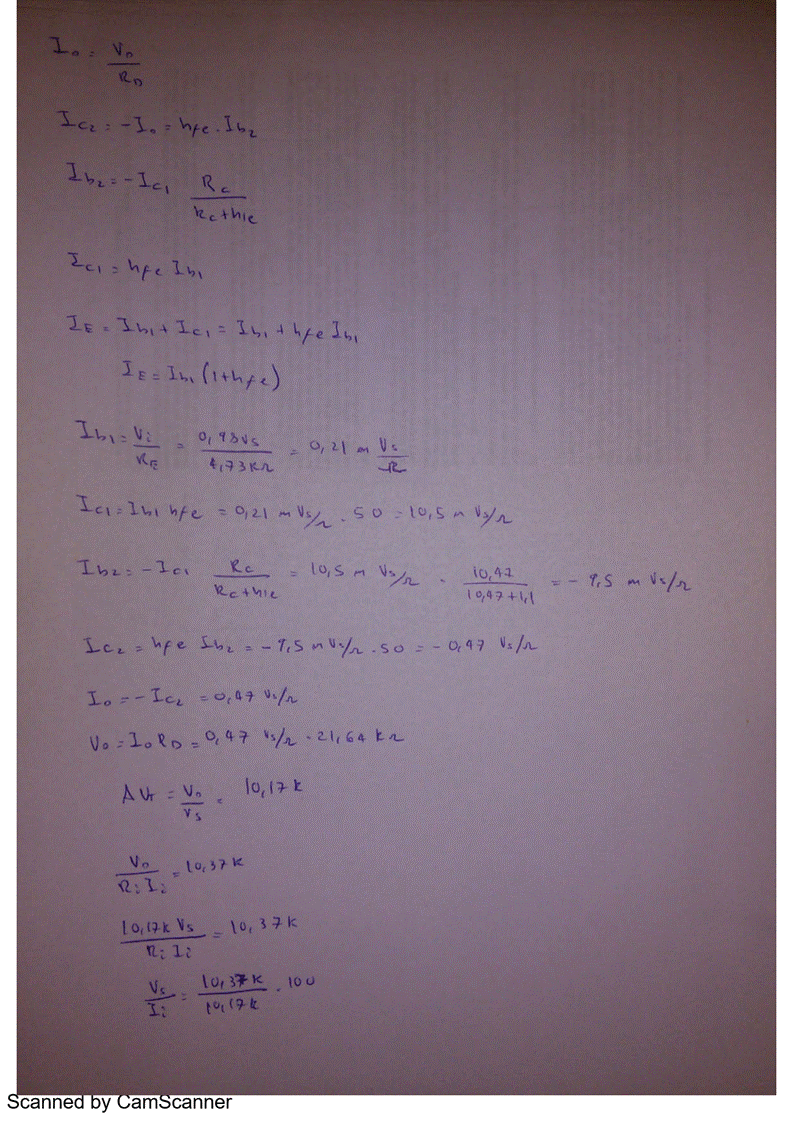 I₀ = V₀ / R_D
I_C2 = -I₀ = hfe . I_b2
I_b2 = -I_C1 R_C / (R_C + hie)
I_C1 = hfe I_b1
I_E = I_b1 + I_C1 = I_b1 + hfe I_b1
I_E = I_b1 (1+hfe)
I_b1 = Vi / R_E = 0,98Vs / 4,73KΩ = 0,21 m Vs/Ω
I_C1 = I_b1 hfe = 0,21 m Vs/Ω . 50 = 10,5 m Vs/Ω
I_b2 = -I_C1 R_C / (R_C + hie) = 10,5 m Vs/Ω . 10,47 / (10,47+1,1) = - 9,5 m Vs/Ω
I_C2 = hfe I_b2 = -9,5 m Vs/Ω . 50 = - 0,47 Vs/Ω
I₀ = -I_C2 = 0,47 Vs/Ω
V₀ = I₀ R_D = 0,47 Vs/Ω . 21,64 KΩ
= V₀ / Vs = 10,17 K
V₀ / (Ri Ii) = 10,37 K
10,17K Vs / (Ri Ii) = 10,37 K
Vs / Ii = 10,37 K / 10,17 K . 100
Scanned by CamScanner